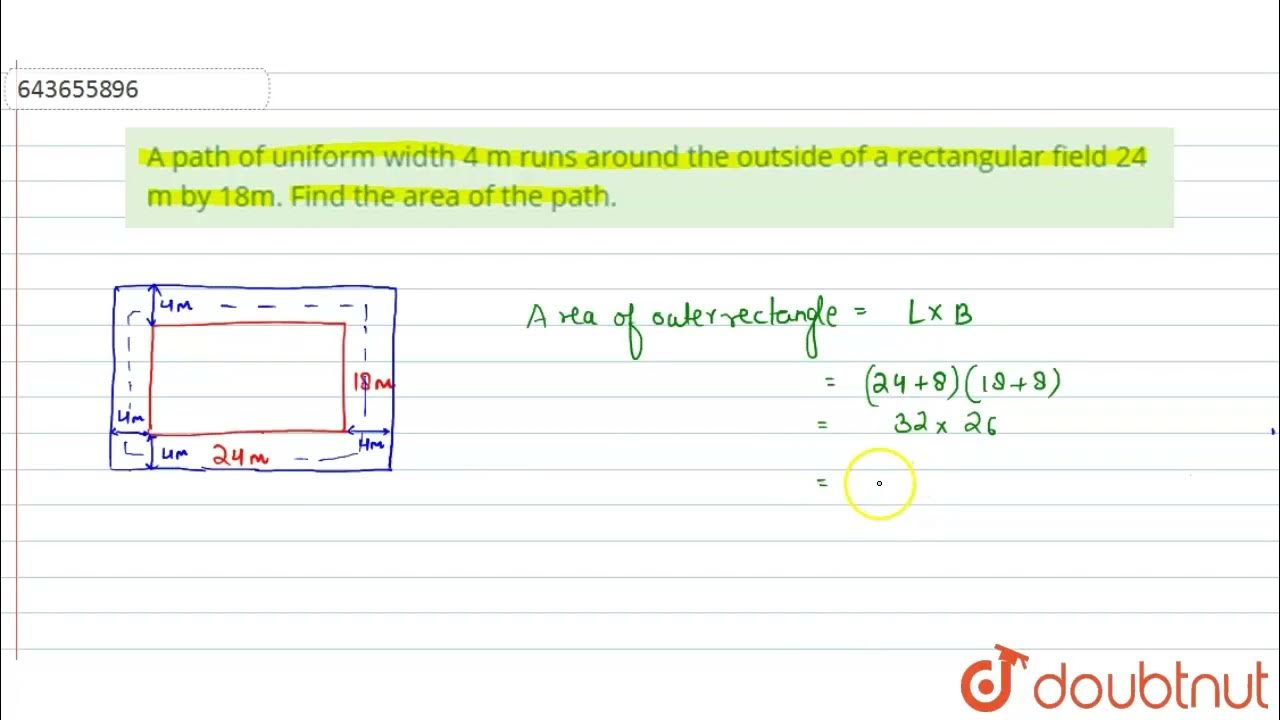 643655896
A path of uniform width 4 m runs around the outside of a rectangular field 24
m by 18m. Find the area of the path.
4m
18m
4m
4m
4m
24m
Area of outer rectangle = L × B
= (24+8)(18+8)
= 32 × 26
=
doubtnut